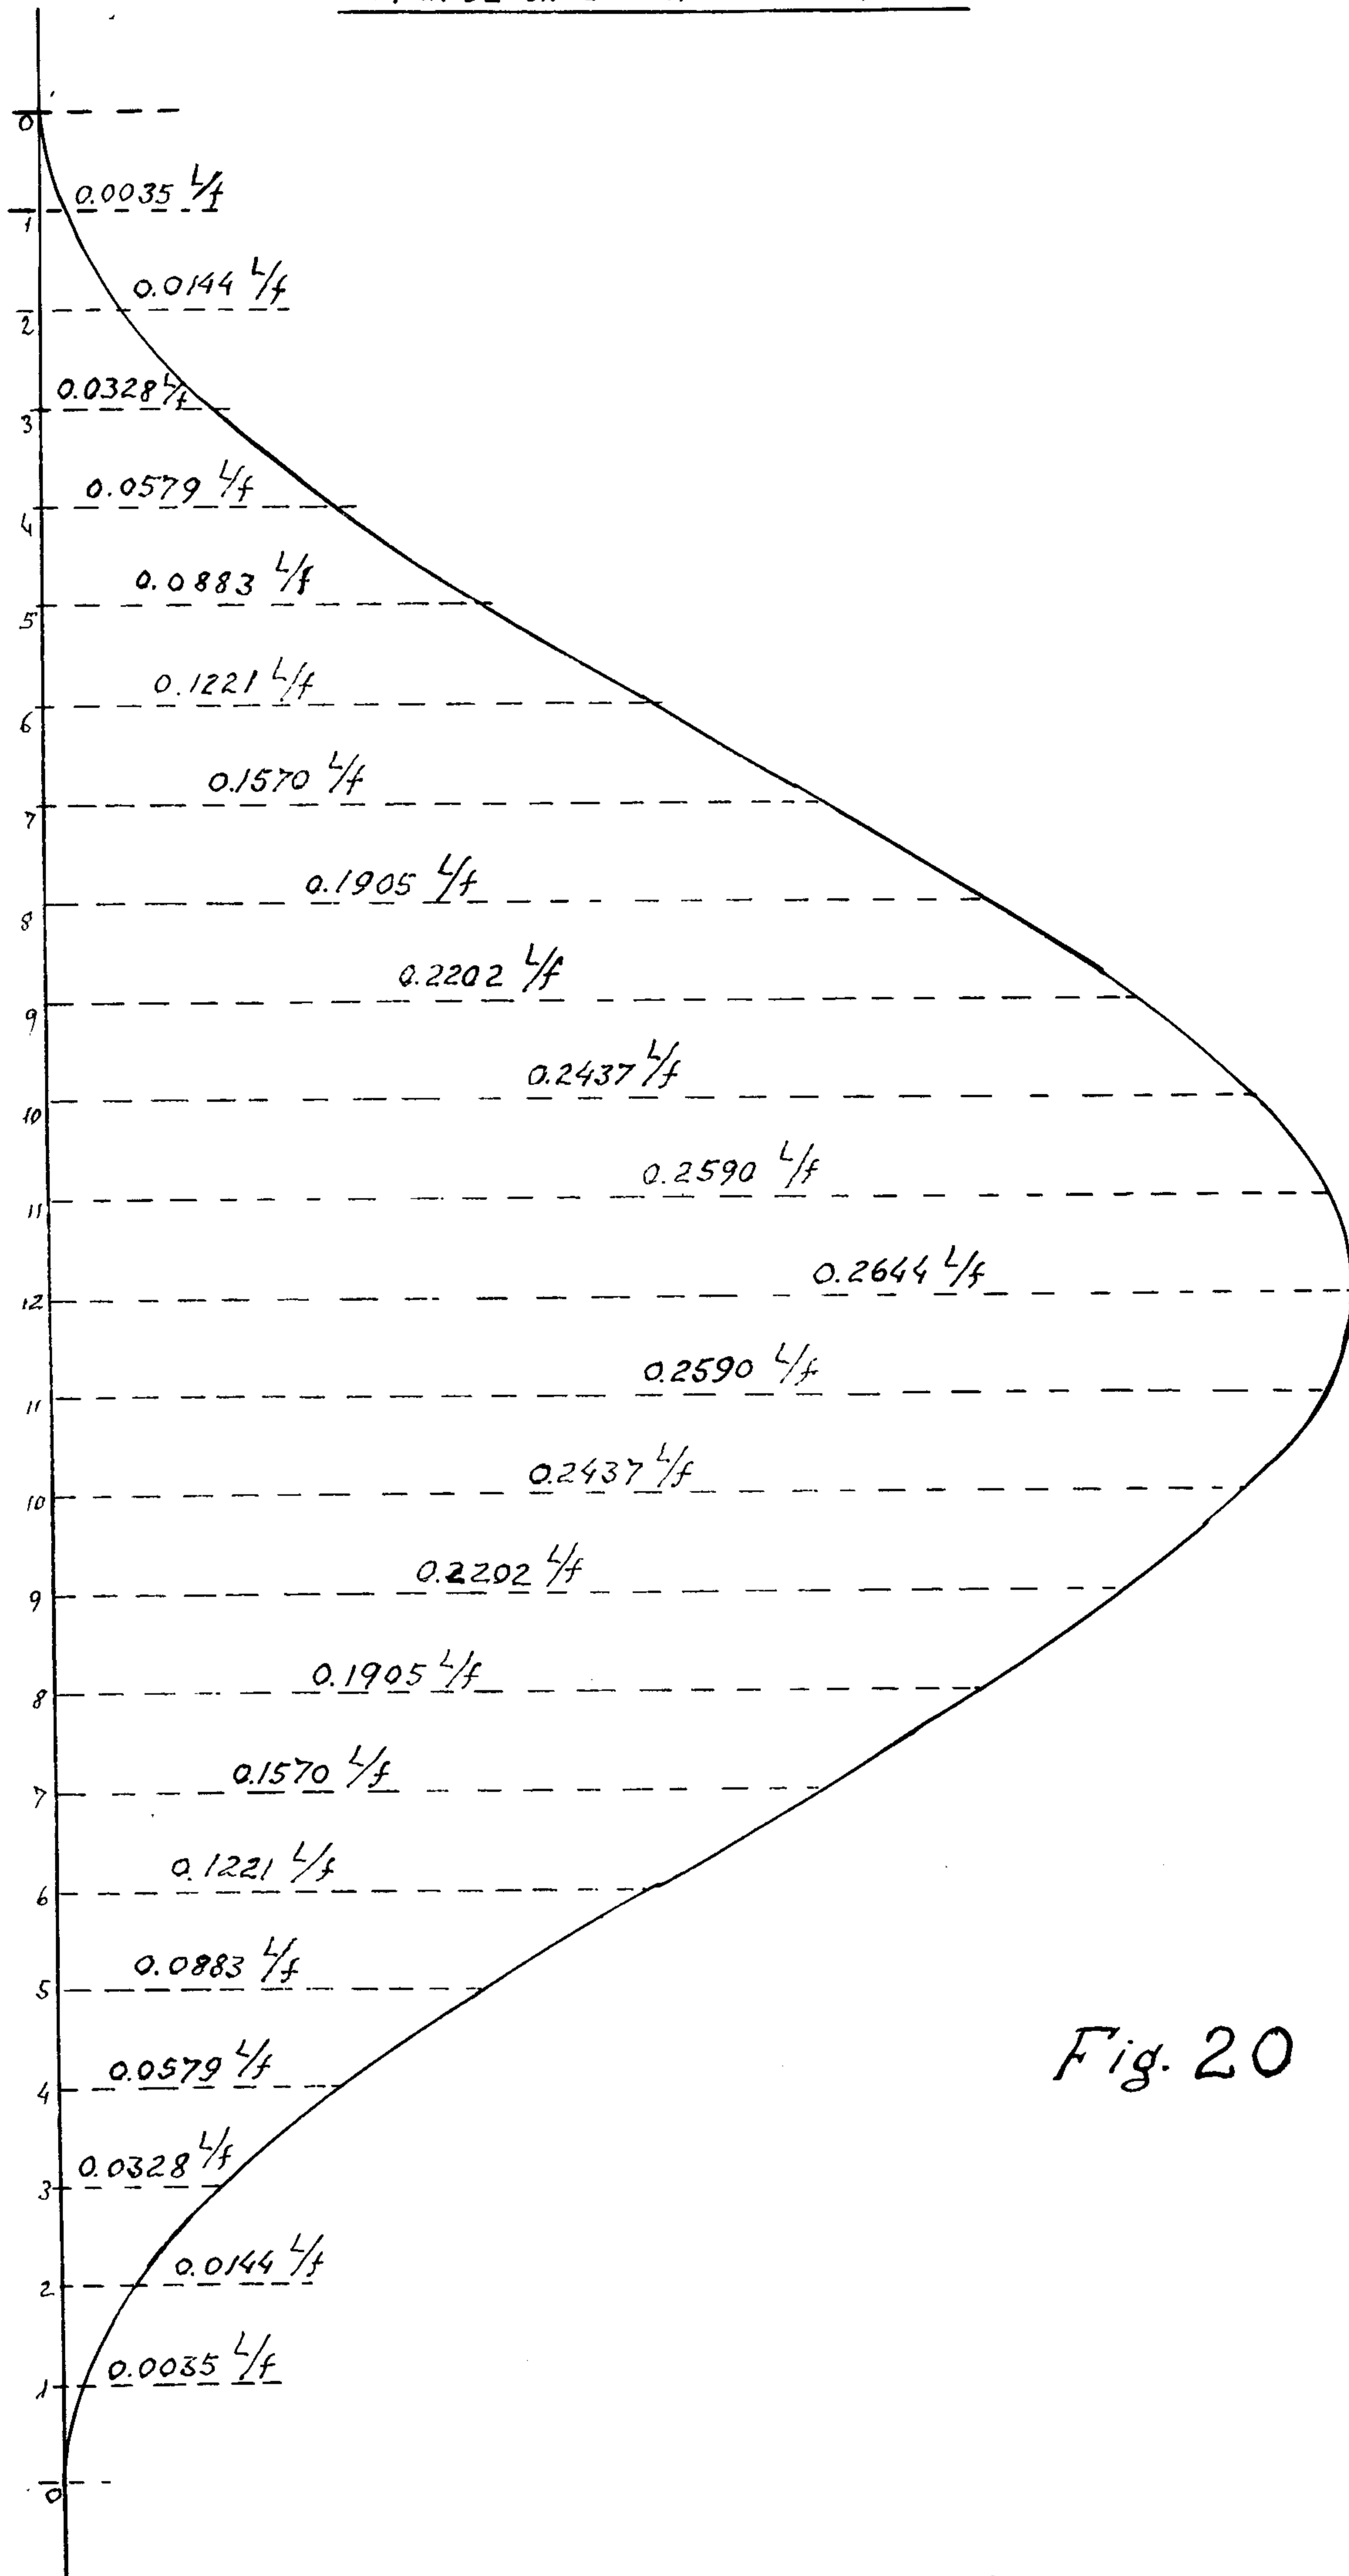 0
0.0035 L/f
1
0.0144 L/f
2
0.0328 L/f
3
0.0579 L/f
4
0.0883 L/f
5
0.1221 L/f
6
0.1570 L/f
7
0.1905 L/f
8
0.2202 L/f
9
0.2437 L/f
10
0.2590 L/f
11
0.2644 L/f
12
0.2590 L/f
11
0.2437 L/f
10
0.2202 L/f
9
0.1905 L/f
8
0.1570 L/f
7
0.1221 L/f
6
0.0883 L/f
5
Fig. 20
0.0579 L/f
4
0.0328 L/f
3
0.0144 L/f
2
0.0035 L/f
1
0